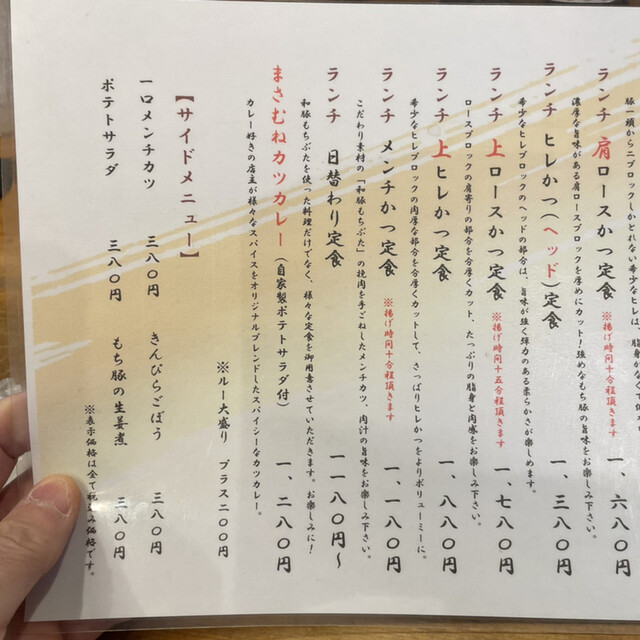 豚一頭から二ブロックしかとれない希少なヒレは、脂身が
ランチ 肩ロースかつ定食 ※揚げ時間十分程頂きます 一、六八〇円
濃厚な旨味がある肩ロースブロックを厚めにカット!強めなもち豚の旨味をお楽しみ下さい。
ランチ ヒレかつ(ヘッド)定食 一、三八〇円
希少なヒレブロックのヘッドの部分は、旨味が強く弾力のある柔らかさが楽しめます。
ランチ 上ロースかつ定食 ※揚げ時間十五分程頂きます 一、七八〇円
ロースブロックの肩寄りの部分を分厚くカット、たっぷりの脂身と肉感をお楽しみ下さい。
ランチ 上ヒレかつ定食 一、八八〇円
希少なヒレブロックの肉厚な部分を分厚くカットして、さっぱりヒレかつをよりボリューミーに。
ランチ メンチかつ定食 ※揚げ時間十分程頂きます 一、一八〇円
こだわり素材の「和豚もちぶた」の挽肉を手ごねしたメンチカツ、肉汁の旨味をお楽しみ下さい。
ランチ 日替わり定食 一一八〇円〜
和豚もちぶたを使った料理だけでなく、様々な定食を御用意させていただきます。お楽しみに!
まさむねカツカレー(自家製ポテトサラダ付) 一、二八〇円
カレー好きの店主が様々なスパイスをオリジナルブレンドしたスパイシーなカツカレー。
※ルー大盛り プラス二〇〇円
【サイドメニュー】
一口メンチカツ 三八〇円 きんぴらごぼう 三八〇円
ポテトサラダ 三八〇円 もち豚の生姜煮 三八〇円
※表示価格は全て税込み価格です。